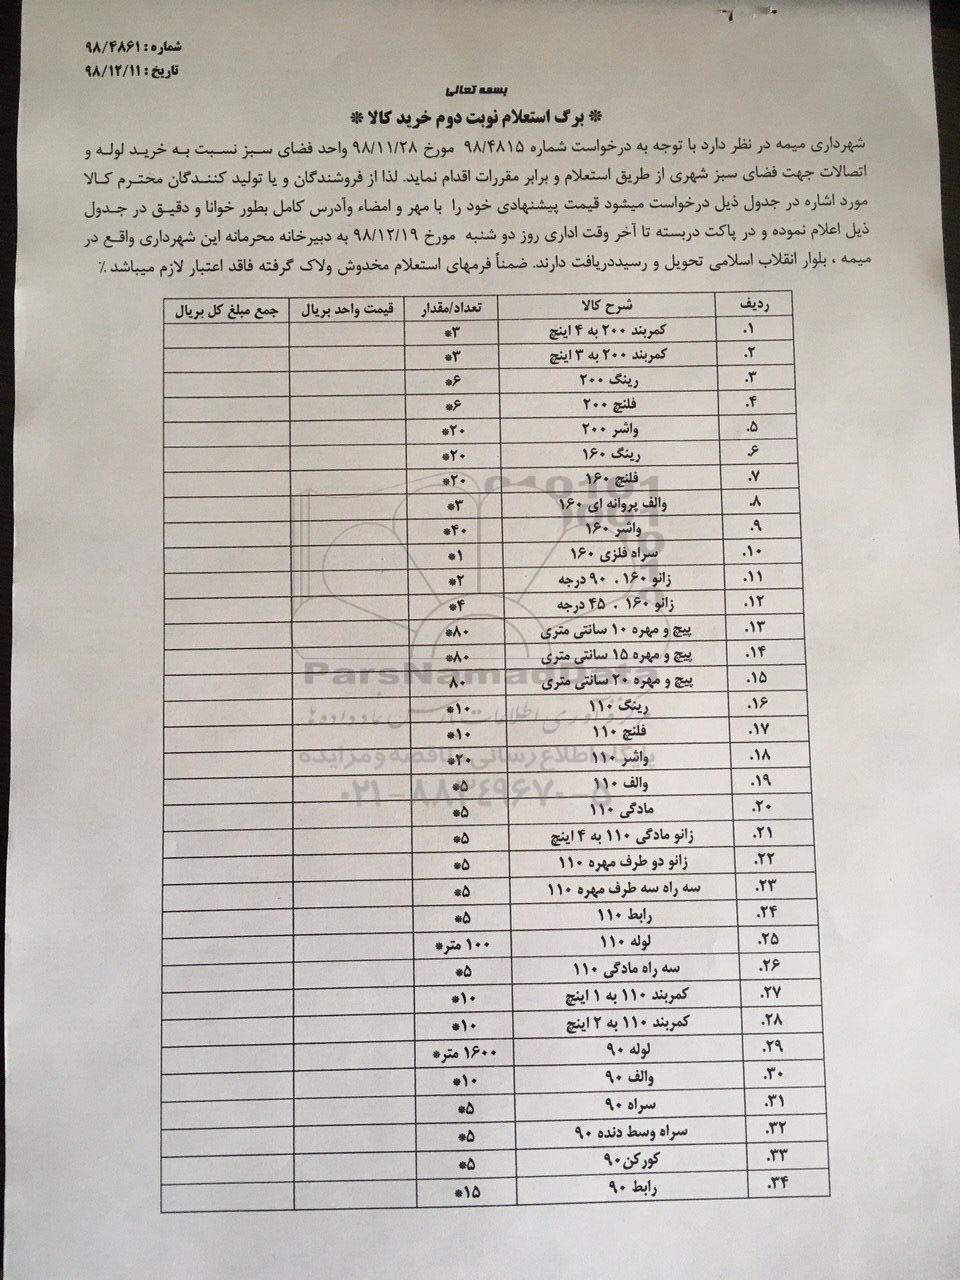 شماره : ۹۸/۴۸۶۱
تاریخ : ۹۸/۱۲/۱۱
بسمه تعالی
* برگ استعلام نوبت دوم خرید کالا *
شهرداری میمه در نظر دارد با توجه به درخواست شماره ۹۸/۴۸۱۵ مورخ ۹۸/۱۱/۲۸ واحد فضای سبز نسبت به خرید لوله و
اتصالات جهت فضای سبز شهری از طریق استعلام و برابر مقررات اقدام نماید. لذا از فروشندگان و یا تولید کنندگان محترم کالا
مورد اشاره در جدول ذیل درخواست میشود قیمت پیشنهادی خود را با مهر و امضاء وآدرس کامل بطور خوانا و دقیق در جدول
ذیل اعلام نموده و در پاکت دربسته تا آخر وقت اداری روز دو شنبه مورخ ۹۸/۱۲/۱۹ به دبیرخانه محرمانه این شهرداری واقع در
میمه ، بلوار انقلاب اسلامی تحویل و رسیددریافت دارند. ضمناً فرمهای استعلام مخدوش ولاک گرفته فاقد اعتبار لازم میباشد ٪
ردیف شرح کالا تعداد/مقدار قیمت واحد بریال جمع مبلغ کل بریال
۱. کمربند ۲۰۰ به ۴ اینچ ۳*
۲. کمربند ۲۰۰ به ۳ اینچ ۳*
۳. رینگ ۲۰۰ ۶*
۴. فلنچ ۲۰۰ ۶*
۵. واشر ۲۰۰ ۲۰*
۶. رینگ ۱۶۰ ۲۰*
۷. فلنچ ۱۶۰ ۲۰*
۸. والف پروانه ای ۱۶۰ ۳*
۹. واشر ۱۶۰ ۴۰*
۱۰. سراه فلزی ۱۶۰ ۱*
۱۱. زانو ۱۶۰ . ۹۰ درجه ۲*
۱۲. زانو ۱۶۰ . ۴۵ درجه ۴*
۱۳. پیچ و مهره ۱۰ سانتی متری ۸۰*
۱۴. پیچ و مهره ۱۵ سانتی متری ۸۰*
۱۵. پیچ و مهره ۲۰ سانتی متری ۸۰
۱۶. رینگ ۱۱۰ ۱۰*
۱۷. فلنچ ۱۱۰ ۱۰*
۱۸. واشر ۱۱۰ ۲۰*
۱۹. والف ۱۱۰ ۵*
۲۰. مادگی ۱۱۰ ۵*
۲۱. زانو مادگی ۱۱۰ به ۴ اینچ ۵*
۲۲. زانو دو طرف مهره ۱۱۰ ۵*
۲۳. سه راه سه طرف مهره ۱۱۰ ۵*
۲۴. رابط ۱۱۰ ۵*
۲۵. لوله ۱۱۰ ۱۰۰ متر*
۲۶. سه راه مادگی ۱۱۰ ۵*
۲۷. کمربند ۱۱۰ به ۱ اینچ ۱۰*
۲۸. کمربند ۱۱۰ به ۲ اینچ ۱۰*
۲۹. لوله ۹۰ ۱۶۰۰ متر*
۳۰. والف ۹۰ ۱۰*
۳۱. سراه ۹۰ ۵*
۳۲. سراه وسط دنده ۹۰ ۵*
۳۳. کورکن۹۰ ۵*
۳۴. رابط ۹۰ ۱۵*
ParsNamadData
پایگاه اطلاع رسانی مناقصه و مزایده
۰۲۱-۸۸۳۴۹۶۷۰-۵